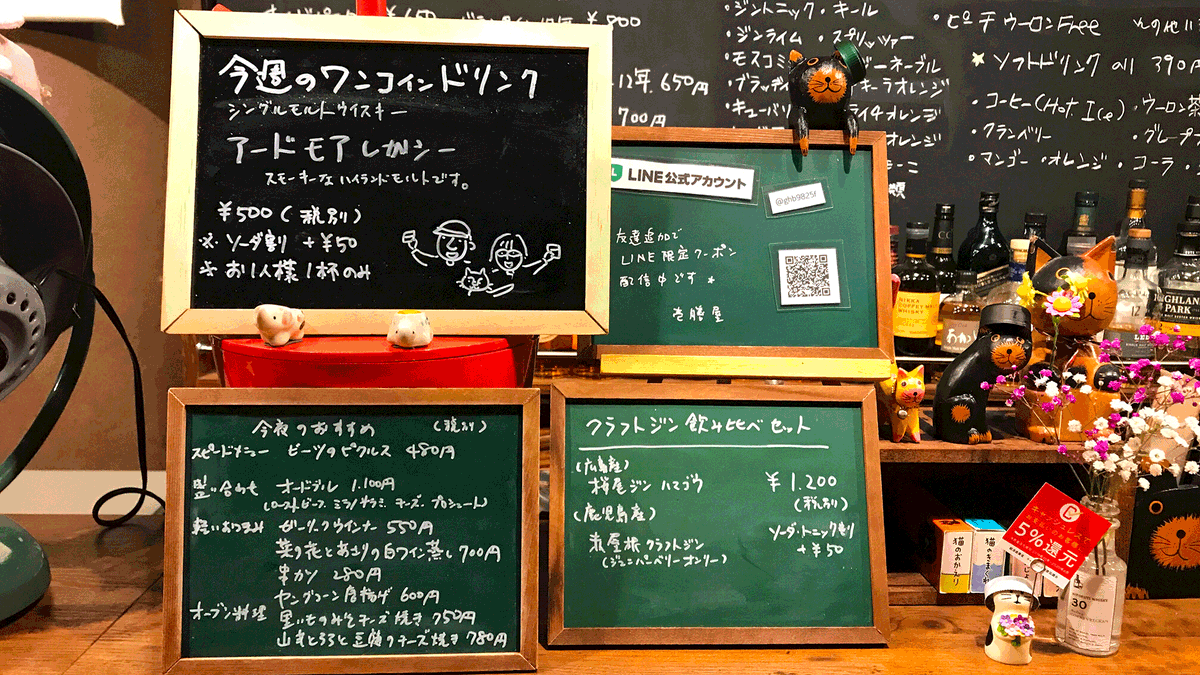 今週のワンコインドリンク
シングルモルトウイスキー
アードモアレガシー
スモーキーなハイランドモルトです。
¥500(税別)
※ソーダ割り +¥50
※お1人様1杯のみ
LINE公式アカウント
@ghb9825f
友達追加で
LINE限定クーポン
配信中です
壱膳屋
今夜のおすすめ (税別)
スピードメニュー ビーツのピクルス 480円
盛り合わせ オードブル 1.100円
(ローストビーフ ミラノサラミ チーズ プロシュート)
軽いおつまみ ガーリックウインナー 550円
菜の花とあさりの白ワイン蒸し 700円
串カツ 280円
ヤングコーン唐揚げ 600円
オーブン料理 里いものみそチーズ焼き 750円
山芋とろろと豆腐のチーズ焼き 780円
クラフトジン飲み比べセット
(広島産)
桜尾ジン ハマゴウ
¥1.200
(税別)
(鹿児島産)
ソーダ・トニック割り
+¥50
蒸留旅クラフトジン
(ジュニパーベリーオンリー)
¥800
12年 650円
700円
・ジントニック・キール
・ジンライム・スプリッツァー
・ピーチウーロンFree
その他
★ソフトドリンク all 390円
・コーヒー(Hot. Ice)・ウーロン茶
・クランベリー
・マンゴー・オレンジ・コーラ
NIKKA
COFFEY MALT
WHISKY
あかし
HIGHLAND
PARK
12
猫のおかえり
5%還元
30